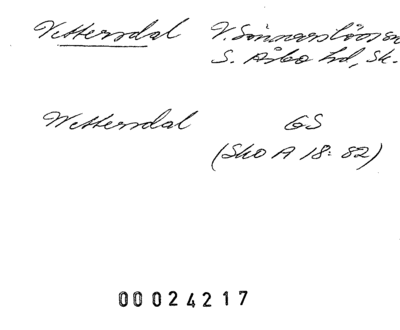 Vettersdal V. Sönnarslövs
S. Åsbo hd, Sk.
Wettersdal GS
(Sko A 18: 82)
00024217